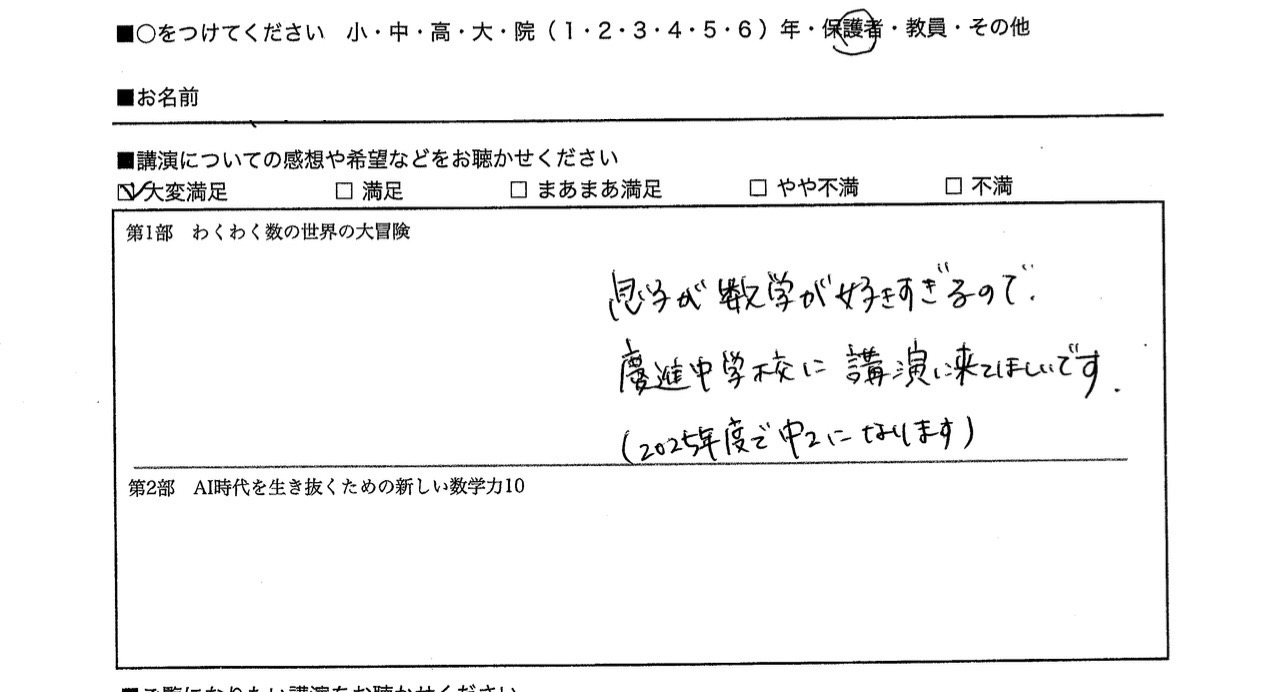 ■○をつけてください　小・中・高・大・院（1・2・3・4・5・6）年・保護者・教員・その他
■お名前
■講演についての感想や希望などをお聴かせください
☑大変満足　□ 満足　□ まあまあ満足　□ やや不満　□ 不満
第1部　わくわく数の世界の大冒険
息子が数学が好きすぎるので、
慶進中学校に講演に来てほしいです.
(2025年度で中2になります)
第2部　AI時代を生き抜くための新しい数学力10
■ご覧になりたい講演をお聴かせください